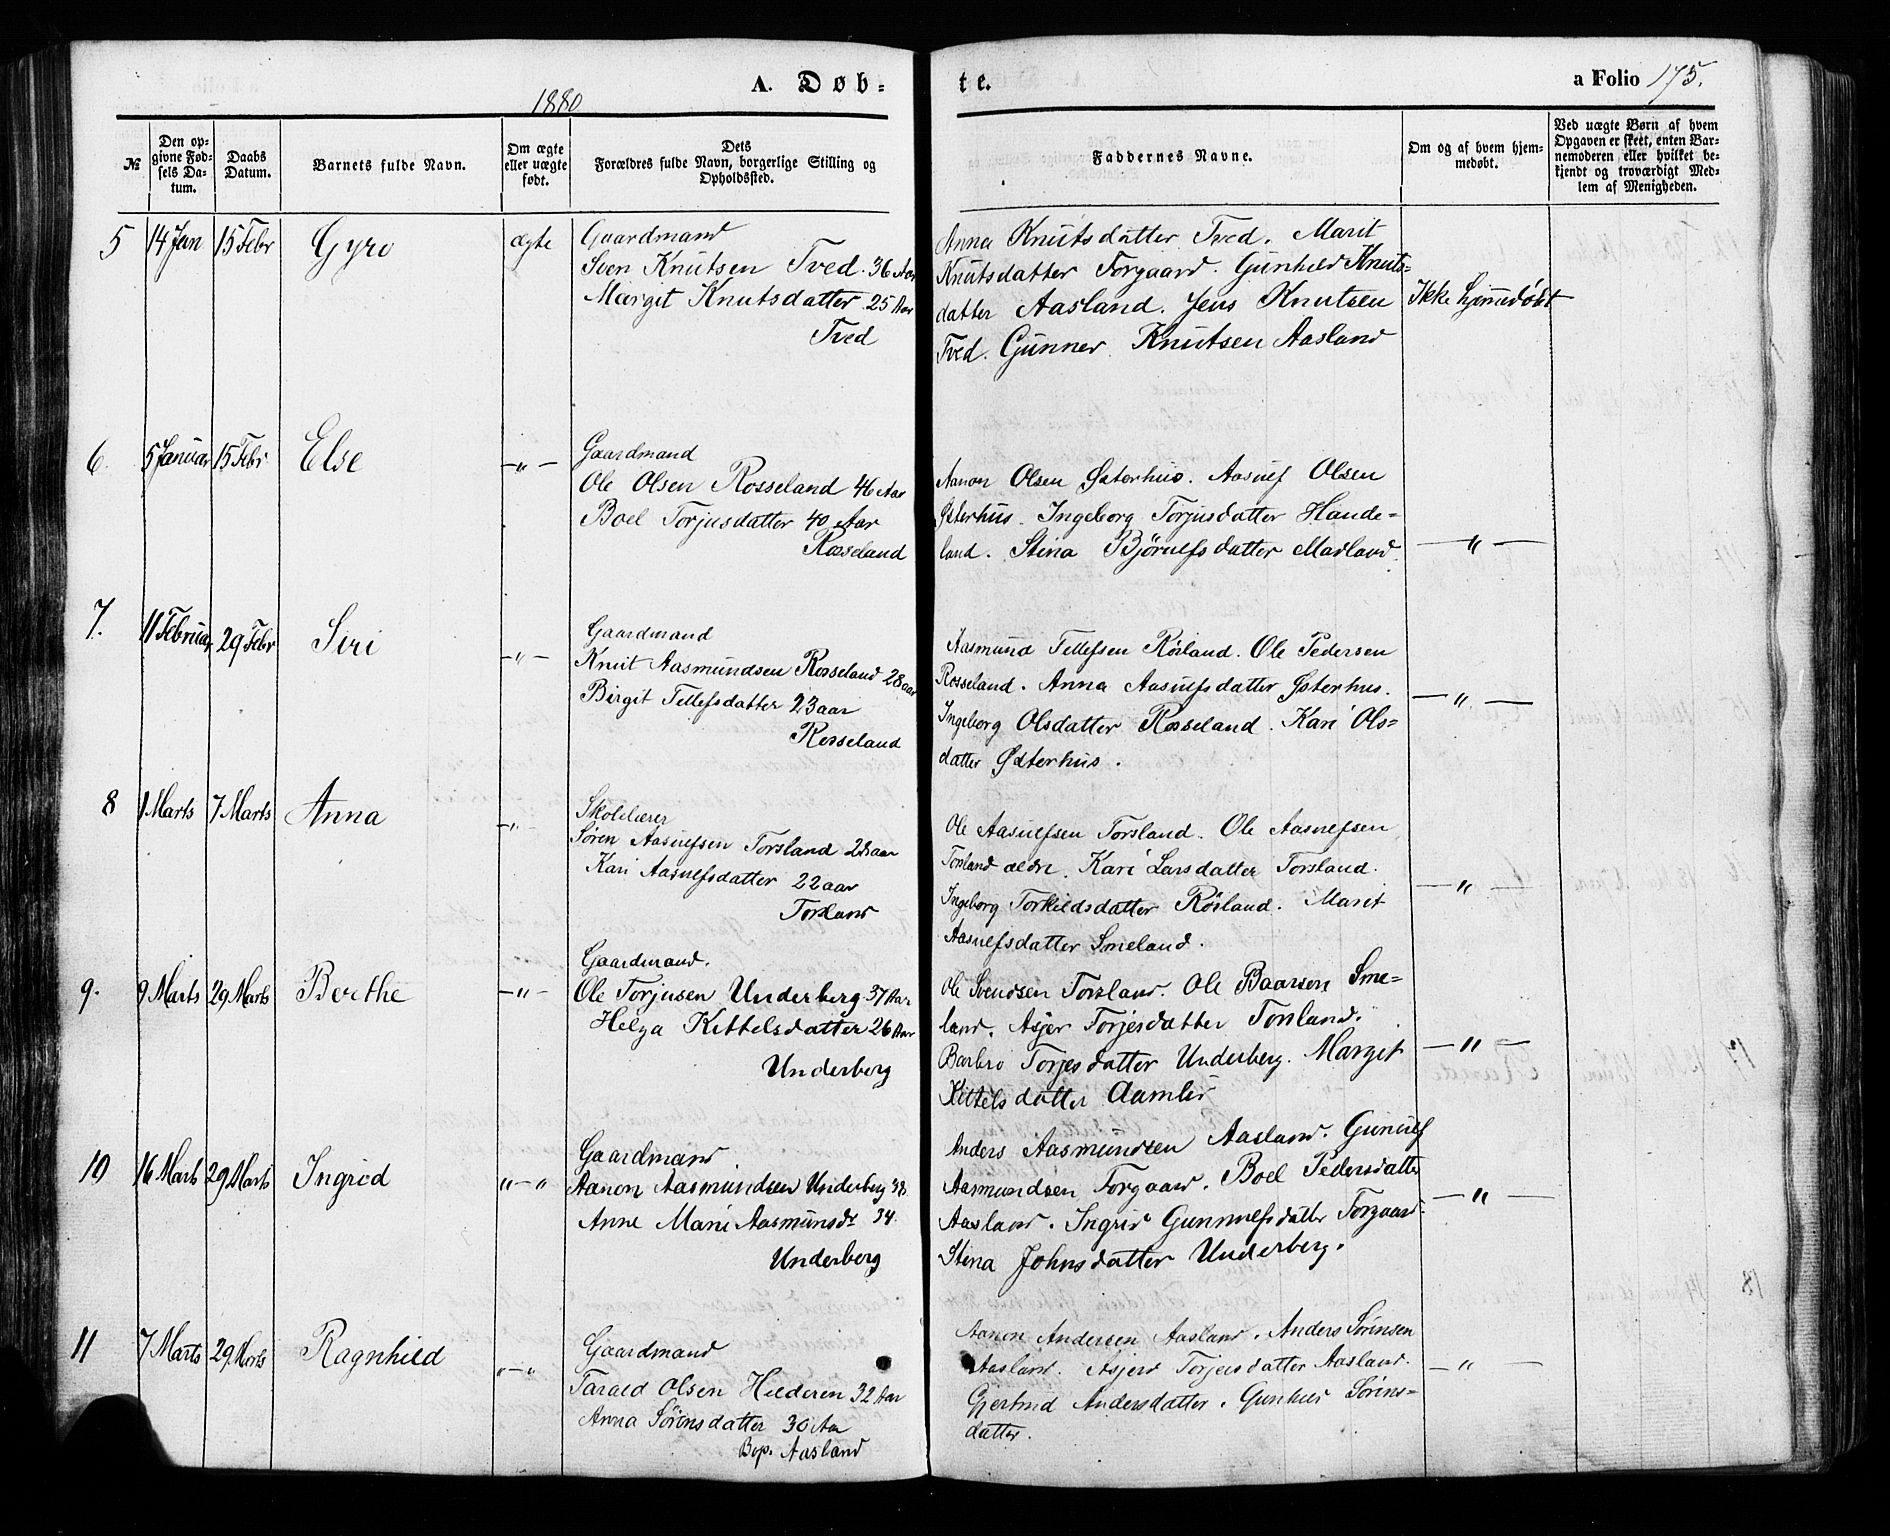 A. Døb-
te.
a Folio 175.
1880
№
Den op-
givne Fød-
sels Da-
tum.
Daabs
Datum.
Barnets fulde Navn.
Om ægte
eller uægte
født.
Dets
Forældres fulde Navn, borgerlige Stilling og
Opholdssted.
Faddernes Navne.
Om og af hvem hjem-
medøbt.
Ved uægte Børn af hvem
Opgaven er skeet, enten Bar-
nemoderen eller hvilket be-
kjendt og troværdigt Med-
lem af Menigheden.
5
14 Jan
15 Febr
Gyro
ægte
Gaardmand
Sven Knutsen Tved. 36 Aar
Margit Knutsdatter 25 Aar
Tved
Anna Knutsdatter Tved. Marit
Knutsdatter Torgaard. Gunhild Knuts=
datter Aasland. Jens Knutsen
Tved. Gunner Knutsen Aasland
Ikke hjemmedøbt
6.
5 Januar
15 Febr
Else
-"-
Gaardmand
Ole Olsen Rosseland 46 Aar
Boel Torjusdatter 40 Aar
Rosseland
Aanon Olsen Østerhus. Aasulf Olsen
Østerhus. Ingeborg Torjusdatter Hande=
land. Stina Bjørulfsdatter Masland.
-"-
7.
11 Februar
29 Febr
Siri
-"-
Gaardmand
Knut Aasmundsen Rosseland 28 aar
Birgit Tellefsdatter 23 aar
Rosseland
Aasmund Tellefsen Røsland. Ole Pedersen
Rosseland. Anna Aasulfsdatter Østerhus.
Ingeborg Olsdatter Rosseland. Kari Ols=
datter Østerhus.
-"-
8
1 Marts
7 Marts
Anna
-"-
Skolelærer
Søren Aasulfsen Torsland 28 aar
Kari Aasulfsdatter 22 aar
Torsland
Ole Aasulfsen Torsland. Ole Aasulfsen
Torsland ældre. Kari Larsdatter Torsland.
Ingeborg Torkildsdatter Røsland. Marit
Aasulfsdatter Smeland.
-"-
9.
9 Marts
29 Marts
Berthe
-"-
Gaardmand.
Ole Torjusen Underberg 37 Aar
Helga Kittelsdatter 26 Aar
Underberg
Ole Svendsen Torsland. Ole Baarsen Sme=
land. Asjer Torjesdatter Torsland.
Barbro Torjesdatter Underberg. Margit
Kittelsdatter Aamlie
-"-
10
16 Marts
29 Marts
Ingrid
"-"
Gaardmand
Aanon Aasmundsen Underberg 38.
Anne Marie Aasmundsdr 34.
Underberg
Anders Aasmundsen Aasland. Gunulf
Aasmundsen Torgaard. Boel Pedersdatter
Aasland. Ingrid Gunnulfsdatter Torgaard.
Stena Johnsdatter Underberg.
-"-
11
7 Marts
29 Marts
Ragnhild
-"-
Gaardmand
Tarald Olsen Hilderen 32 Aar
Anna Sørensdatter 30 Aar
Bop. Aasland
Aanon Andersen Aasland. Anders Sørensen
Aasland. Asjerd Torjusdatter Aasland.
Gjertrud Andersdatter. Gunhild Sørens=
datter.
-"-